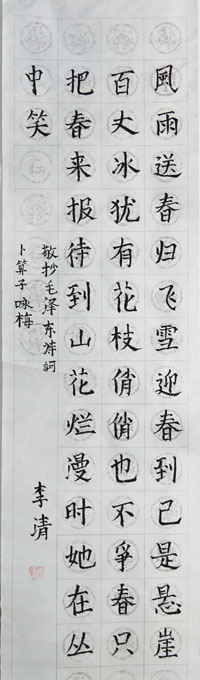 風雨送春归飞雪迎春到已是悬崖
百丈冰犹有花枝俏俏也不爭春只
把春来报待到山花烂漫时她在丛
中笑
敬抄毛澤东诗詞
卜算子咏梅
李清